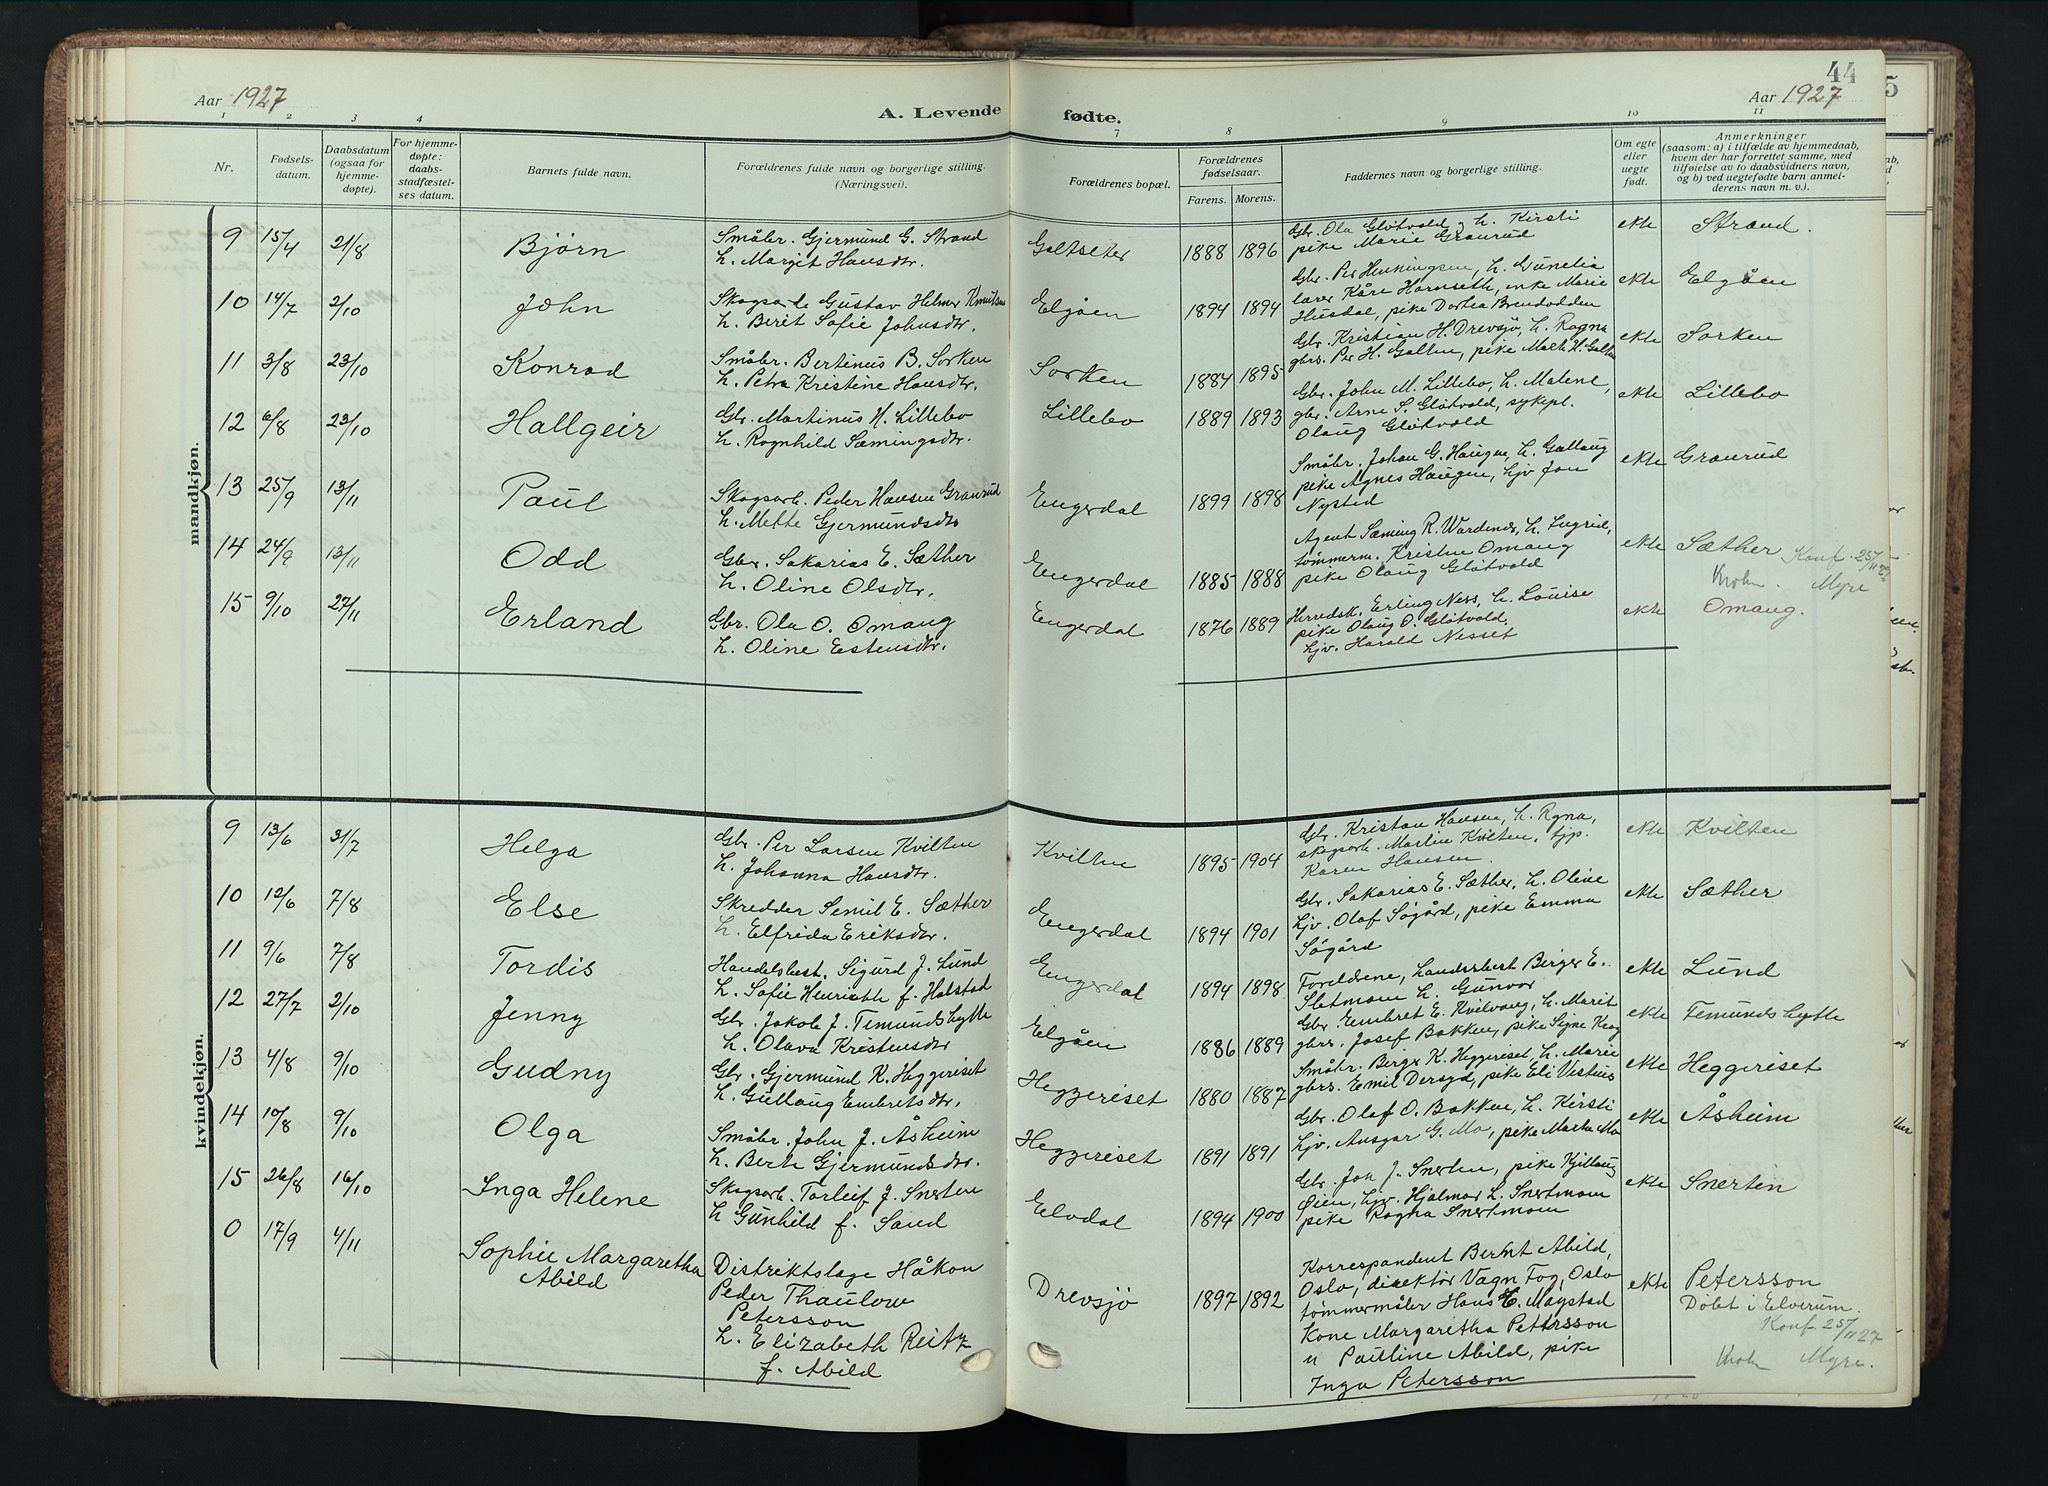 44
Aar 1927
A. Levende fødte.
Aar 1927
1 2 3 4 7 8 9 10 11
Nr.
Fødsels-
datum.
Daabsdatum
(ogsaa for
hjemme-
døpte).
For hjemme-
døpte:
daabs-
stadfæstel-
ses datum.
Barnets fulde navn.
Forældrenes fulde navn og borgerlige stilling.
(Næringsvei).
Forældrenes bopæl.
Forældrenes
fødselsaar.
Farens. Morens.
Faddernes navn og borgerlige stilling.
Om egte
eller
uegte
født.
Anmerkninger
(saasom: a) i tilfælde av hjemmedaab,
hvem der har forrettet samme, med
tilføielse av to daabsvidners navn,
og b) ved uegtefødte barn anmel-
derens navn m. v.).
mandkjøn.
9 15/4 21/8 Bjørn
Småbr. Gjermund G. Strand
h. Margit Hansdtr.
Galtseter 1888 1896
Gbr. Ola Gløtvold, h. Kirsti
pike Marie Granrud
ekte Strand.
10 14/7 2/10 John
Skogsarb. Gustav Helmer Knutsen
h. Berit Sofie Johnsdtr.
Elgåen 1894 1894
Gbr. Per Henningsen, h. Gunelia
lærer Kåre Hornseth, enke Marie
Husdal, pike Dorthea Brendodden
ekte Elgåen
11 3/8 23/10 Konrad
Småbr. Bertinus B. Sorken
h. Petra Kristine Hansdtr.
Sorken 1884 1895
Gbr. Kristian H. Drevsjø, h. Ragna
gbrs. Per H. Galten, pike Marth H. Galten
ekte Sorken
12 6/8 23/10 Hallgeir
Gbr. Martinus H. Lillebo
h. Ragnhild Sæmingsdtr.
Lillebo 1889 1893
Gbr. John M. Lillebo, h. Malene,
gbr. Arne S. Gløtvold, sykepl.
Olaug Gløtvold
ekte Lillebo
13 25/9 13/11 Paul
Skogsarb. Peder Hansen Granrud
h. Mette Gjermundsdtr
Engerdal 1899 1898
Småbr. Johan G. Haugen, h. Gullaug
pike Agnes Haugen, hjv Jon
Nysted
ekte Granrud
14 24/9 13/11 Odd
Gbr. Sakarias E. Sæther
h. Oline Olsdtr.
Engerdal 1885 1888
Agent Sæming R. Wardenær, h. Ingrid,
tømmerm. Kristen Omang
pike Olaug Gløtvold
ekte Sæther Konf. 25/11 27
Krohn. Myre
15 9/10 27/11 Erland
Gbr. Ola O. Omang
h. Oline Estensdtr.
Engerdal 1876 1889
Herredsk. Erling Ness, h. Louise
pike Olaug O. Gløtvold,
hjv. Harald Nesset
ekte Omang.
kvindekjøn.
9 13/6 31/7 Helga
Gbr. Per Larsen Kvilten
h. Johanna Hansdtr.
Kvilten 1895 1904
Gbr. Kristian Hansen, h. Ragna,
skogsarb. Martin Kvilten, hjp.
Karen Hansen.
ekte Kvilten
10 12/6 7/8 Else
Skredder Semil E. Sæther
h. Elfrida Eriksdtr.
Engerdal 1894 1901
Gbr. Sakarias E. Sæther, h. Oline
hjv. Olaf Søgård, pike Emma
Søgård
ekte Sæther
11 9/6 7/8 Tordis
Handelsbest. Sigurd J. Lund
h. Sofie Henriette f. Halstad
Engerdal 1894 1898
Foreldrene, Landsbest Birger E.
Sletmoen h. Gunvor
ekte Lund
12 27/7 2/10 Jenny
Gbr. Jakob J. Femundshytte
h. Olava Kristensdtr
Elgåen 1886 1889
Gbr. Embret E. Kvilvang, h. Marit
gbrs. Josef Bakken, pike Signe Krog
ekte Femundshytte
13 4/8 9/10 Gudny
Gbr. Gjermund K. Heggeriset
h. Gullaug Embretsdtr.
Heggeriset 1880 1887
Småbr. Birger K. Heggeriset, h. Marie
gbrs. Emil Dersyd, pike Eli Vestnes
ekte Heggeriset
14 10/8 9/10 Olga
Småbr. John J. Åsheim
h. Berte Gjermundsdtr.
Heggeriset 1891 1891
Gbr. Olaf O. Bakken, h. Kirsti
hjv. Ansgar G. Mo, pike Marthe Mo
ekte Åsheim
15 26/8 16/10 Inga Helene
Skogsarb. Torleif J. Snerten
h Gunhild f. Sand
Elvdal 1894 1900
Gbr. Jon J. Snerten, pike Kjellaug
Øien, hjv. Hjalmar L. Snertmoen
pike Ragna Snertmoen
ekte Snerten
0 17/9 4/11 Sophie Margaretha
Abild
Distriktslæge Håkon
Peder Thaulow
Petersson
h. Elizabeth Reitz
f. Abild
Drevsjø 1897 1892
Korrespondent Bernt Abild,
Oslo, direktør Vagn Fog, Oslo
tømmermåler Hans E. Møystad
Kone Margaretha Pettersson
u Pauline Abild, pike
Inga Petersson
ekte Petersson
Døbt i Elverum.
Konf. 25/11 27
Krohn Myre.